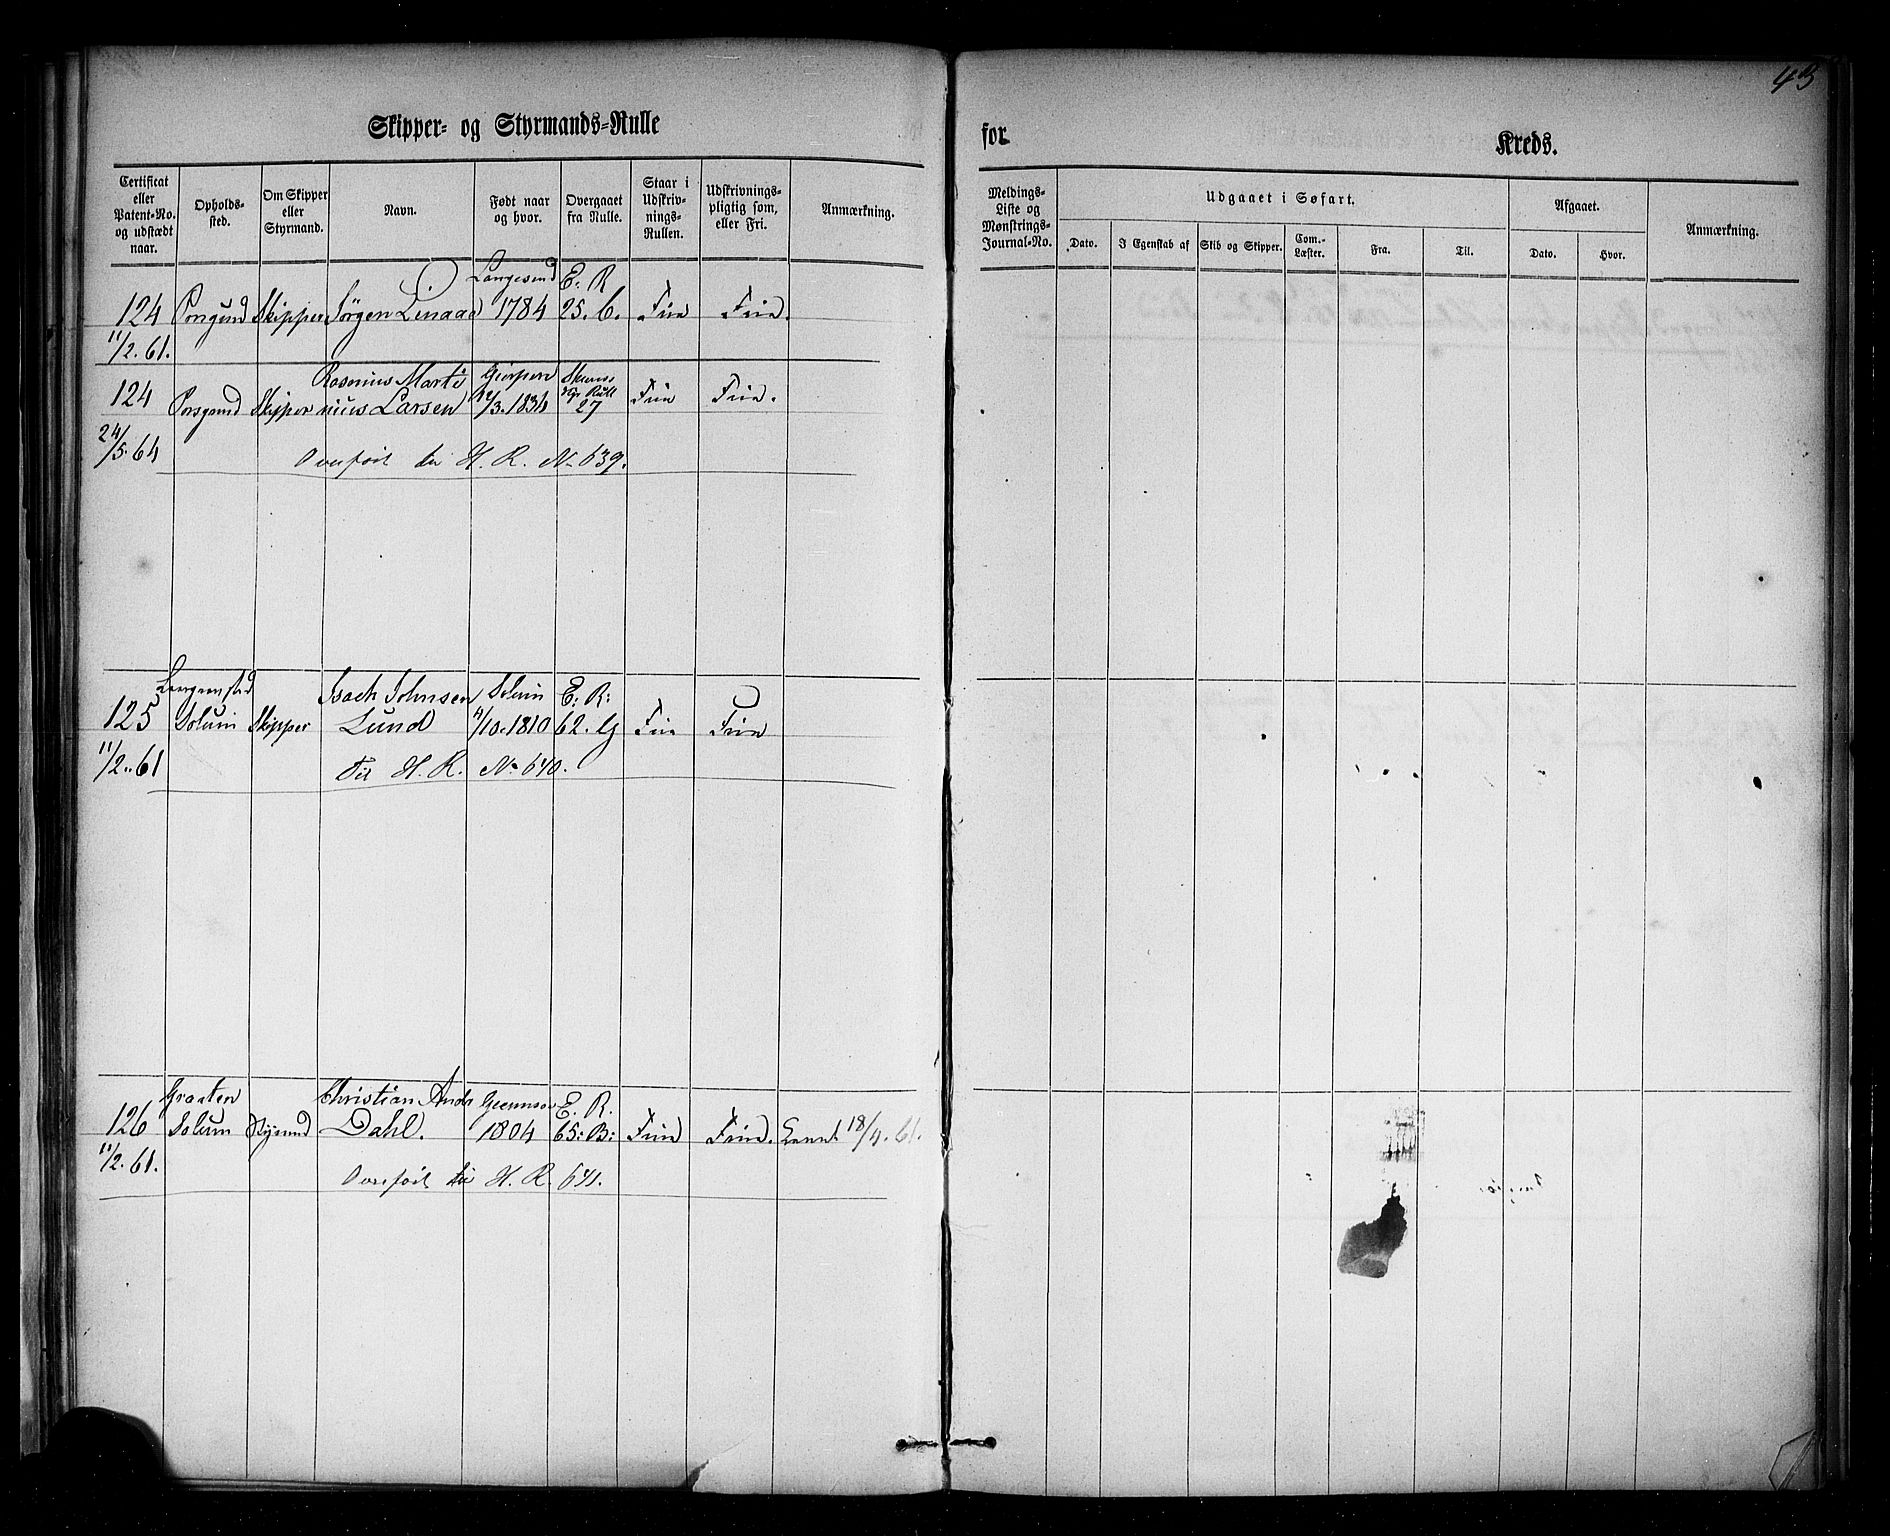 43
Skipper- og Styrmands-Rulle
for
Kreds.
Certificat eller Patent-No. og udstædt naar.
Opholds-sted.
Om Skipper eller Styrmand.
Navn.
Født naar og hvor.
Overgaaet fra Rulle.
Staar i Udskriv-nings-Rullen.
Udskrivnings-pligtig som, eller Fri.
Anmærkning.
Meldings-Liste og Mønstrings-Journal-No.
Udgaaet i Søfart.
Afgaaet.
Anmærkning.
Dato.
I Egenskab af
Skib og Skipper.
Com.-Læster.
Fra.
Til.
Dato.
Hvor.
Langesund E. R
124 Porsgrund Skipper Jørgen Linaae 1784 25. C. Frie Frie.
11/2. 61.
Rasmus Marti Gierpen Skiens
124 Porsgrund Skipper nius Larsen 12/3. 1834 27 Frie Frie.
24/5. 64
Overført til H. R. No 639.
Isach Johnsen Solum E: R:
125 Solum Skipper Lund 11/10. 1810 62. G Frie Frie
11/2. 61
Til H. R. No 640.
Graaten Christian Andr E. R.
126 Solum Dahl. 1804 65: B: Frie Frie. 18/4. 61.
11/2. 61.
Overført til H. R. 641.